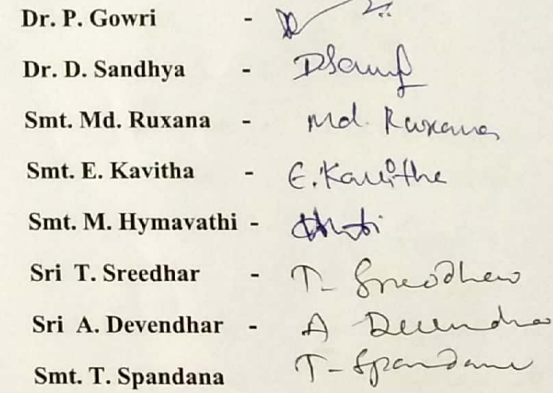 Dr. P. Gowri -
Dr. D. Sandhya - DSand
Smt. Md. Ruxana - Md. Ruxana
Smt. E. Kavitha - E. Kavitha
Smt. M. Hymavathi -
Sri T. Sreedhar - T- Sreedhar
Sri A. Devendhar - A Devendhar
Smt. T. Spandana T- Spandana